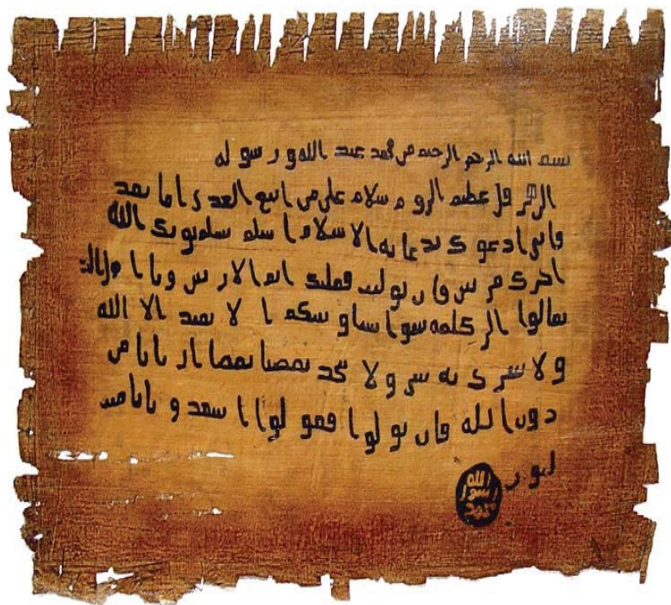 بسم الله الرحمن الرحيم من محمد عبد الله و رسوله
الى هرقل عظيم الروم سلام على من اتبع الهدى اما بعد
فانى ادعوك بدعايه الاسلام اسلم تسلم يوتك الله
اجرك مرتين فان توليت فعليك اثم الاريسين ويا اهل الكتب
تعالوا الى كلمه سوا بيننا وبينكم ا لا نعبد الا الله
ولا نشرك به شيا ولا يتخذ بعضنا بعضا اربابا من
دون الله فان تولوا فقولوا اشهدو بانا مسـ
لمون
الله
رسول
محمد